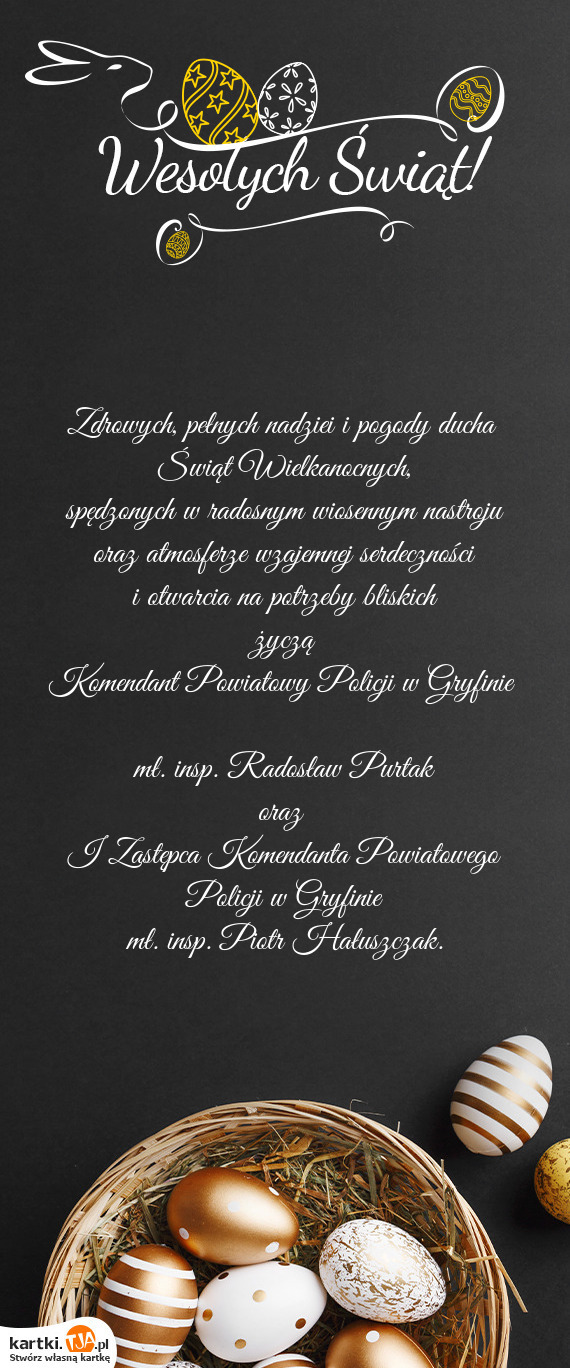 Wesołych Świąt!
Zdrowych, pełnych nadziei i pogody ducha
Świąt Wielkanocnych,
spędzonych w radosnym wiosennym nastroju
oraz atmosferze wzajemnej serdeczności
i otwarcia na potrzeby bliskich
życzą
Komendant Powiatowy Policji w Gryfinie
mł. insp. Radosław Purtak
oraz
I Zastępca Komendanta Powiatowego
Policji w Gryfinie
mł. insp. Piotr Hałuszczak.
kartki.TJA.pl
Stwórz własną kartkę